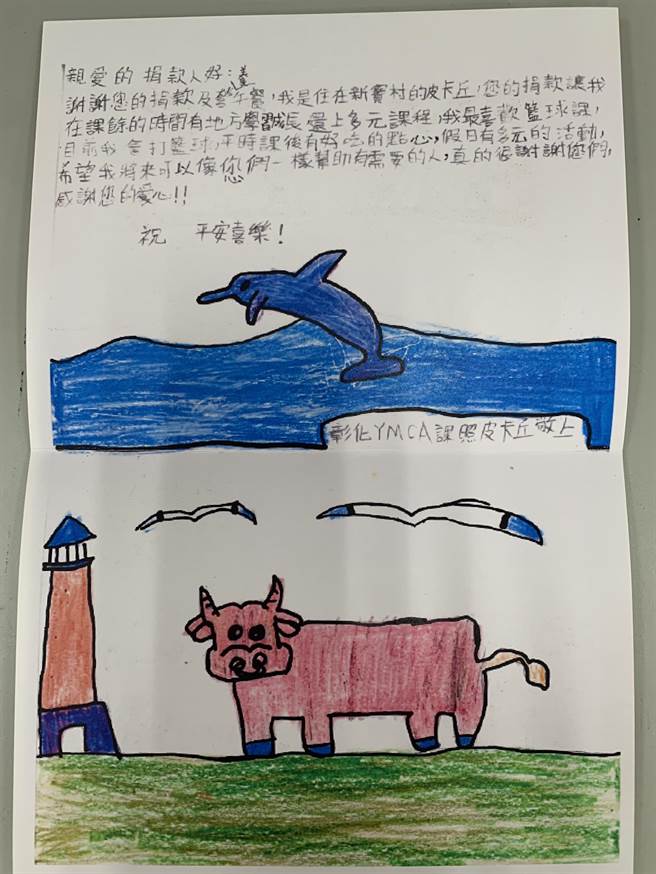 親愛的捐款人好:
謝謝您的捐款及營養午餐,我是住在新寶村的皮卡丘,您的捐款讓我
在課餘的時間有地方學習成長還上多元課程,我最喜歡籃球課,
目前我會打籃球,平時課後有好吃的點心,假日有多元的活動,
希望我將來可以像您們一樣幫助有需要的人,真的很謝謝您們,
感謝您的愛心!!
祝 平安喜樂!
彰化YMCA課照皮卡丘敬上